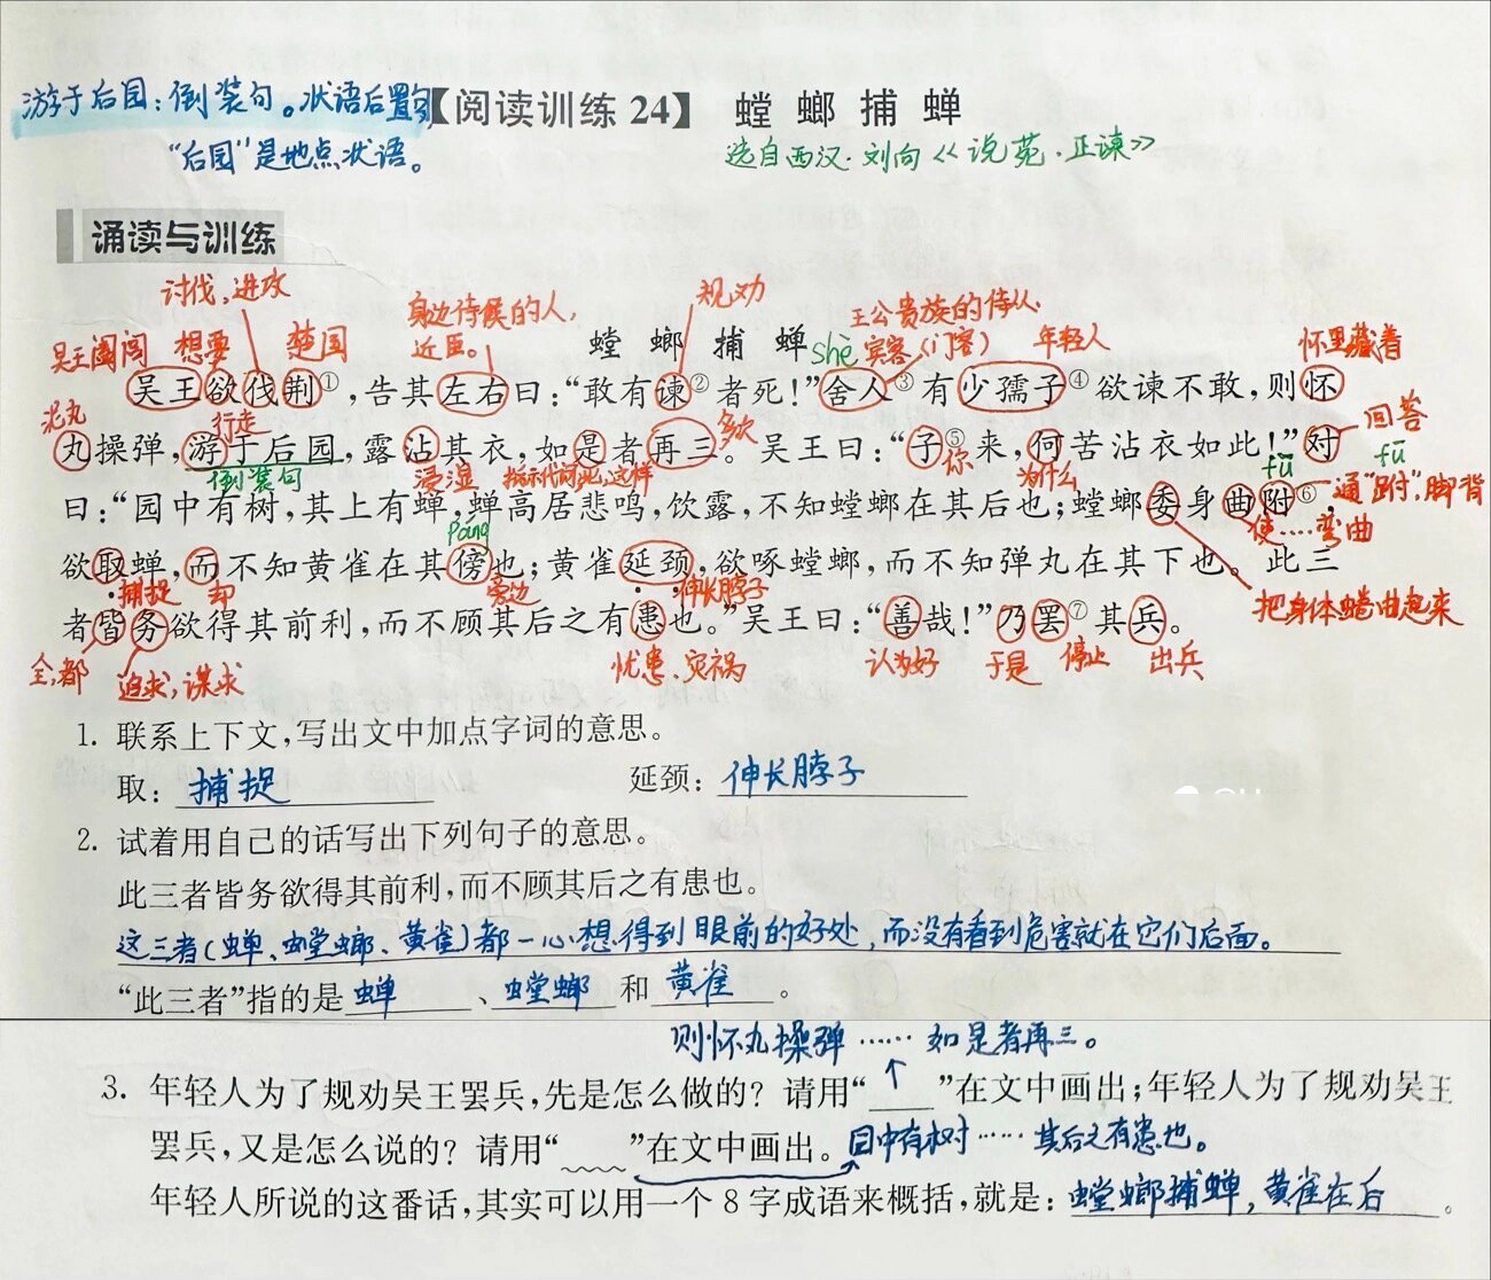 游于后园：倒装句。状语后置句
【阅读训练 24】 螳螂捕蝉
"后园"是地点状语。
选自西汉·刘向《说苑·正谏》
诵读与训练
讨伐，进攻
身边侍候的人，
近臣。
规劝
王公贵族的侍从.
宾客（门客）
吴王阖闾 想要 楚国
螳螂捕蝉
shè
年轻人
怀里藏着
吴王欲伐荆①，告其左右曰：“敢有谏②者死！”舍人③有少孺子④欲谏不敢，则怀
泥丸
行走
多次
回答
丸操弹，游于后园，露沾其衣，如是者再三。吴王曰：“子⑤来，何苦沾衣如此！”对
倒装句
浸湿
指示代词，此，这样
你
为什么
fū
fū
曰：“园中有树，其上有蝉，蝉高居悲鸣，饮露，不知螳螂在其后也；螳螂委身曲附⑥，
通“跗”，脚背
páng
使……弯曲
欲取蝉，而不知黄雀在其傍也；黄雀延颈，欲啄螳螂，而不知弹丸在其下也。此三
捕捉 却
旁边
伸长脖子
把身体蜷曲起来
者皆务欲得其前利，而不顾其后之有患也。”吴王曰：“善哉！”乃罢⑦其兵。
全，都
追求，谋求
忧患、灾祸
认为好
于是
停止
出兵
1. 联系上下文，写出文中加点字词的意思。
取：捕捉 延颈：伸长脖子
2. 试着用自己的话写出下列句子的意思。
此三者皆务欲得其前利，而不顾其后之有患也。
这三者（蝉、螳螂、黄雀）都一心想得到眼前的好处，而没有看到危害就在它们后面。
“此三者”指的是蝉、螳螂和黄雀。
则怀丸操弹……如是者再三。
3. 年轻人为了规劝吴王罢兵，先是怎么做的？请用“____”在文中画出；年轻人为了规劝吴王
罢兵，又是怎么说的？请用“﹏﹏”在文中画出。园中有树……其后之有患也。
年轻人所说的这番话，其实可以用一个8字成语来概括，就是：螳螂捕蝉，黄雀在后。